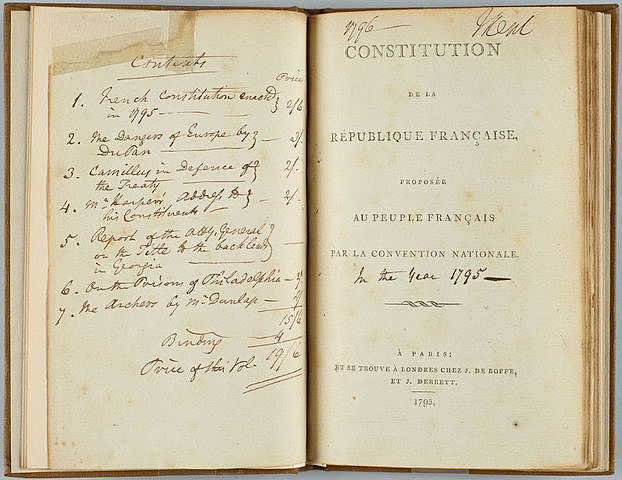 Contents
Price
1. French Constitution enacted
in 1795 — 2/6
2. The Dangers of Europe by
DuPan — 2/.
3. Camillus in Defence of
the Treaty 2/.
4. Mr Harper's Address to
his Constituents — 2/.
5. Report of the atty. General
on the Title to the back land
in Georgia —
6. On the Prisons of Philadelphia —
7. The Archers by Mr Dunlap —
15/6
Binding 4
Price of this Vol. 19/6
1796
CONSTITUTION
DE LA
RÉPUBLIQUE FRANÇAISE,
PROPOSÉE
AU PEUPLE FRANÇAIS
PAR LA CONVENTION NATIONALE.
In the Year 1795 —
À PARIS:
ET SE TROUVE À LONDRES CHEZ J. DE BOFFE,
ET J. DEBRETT.
1795.